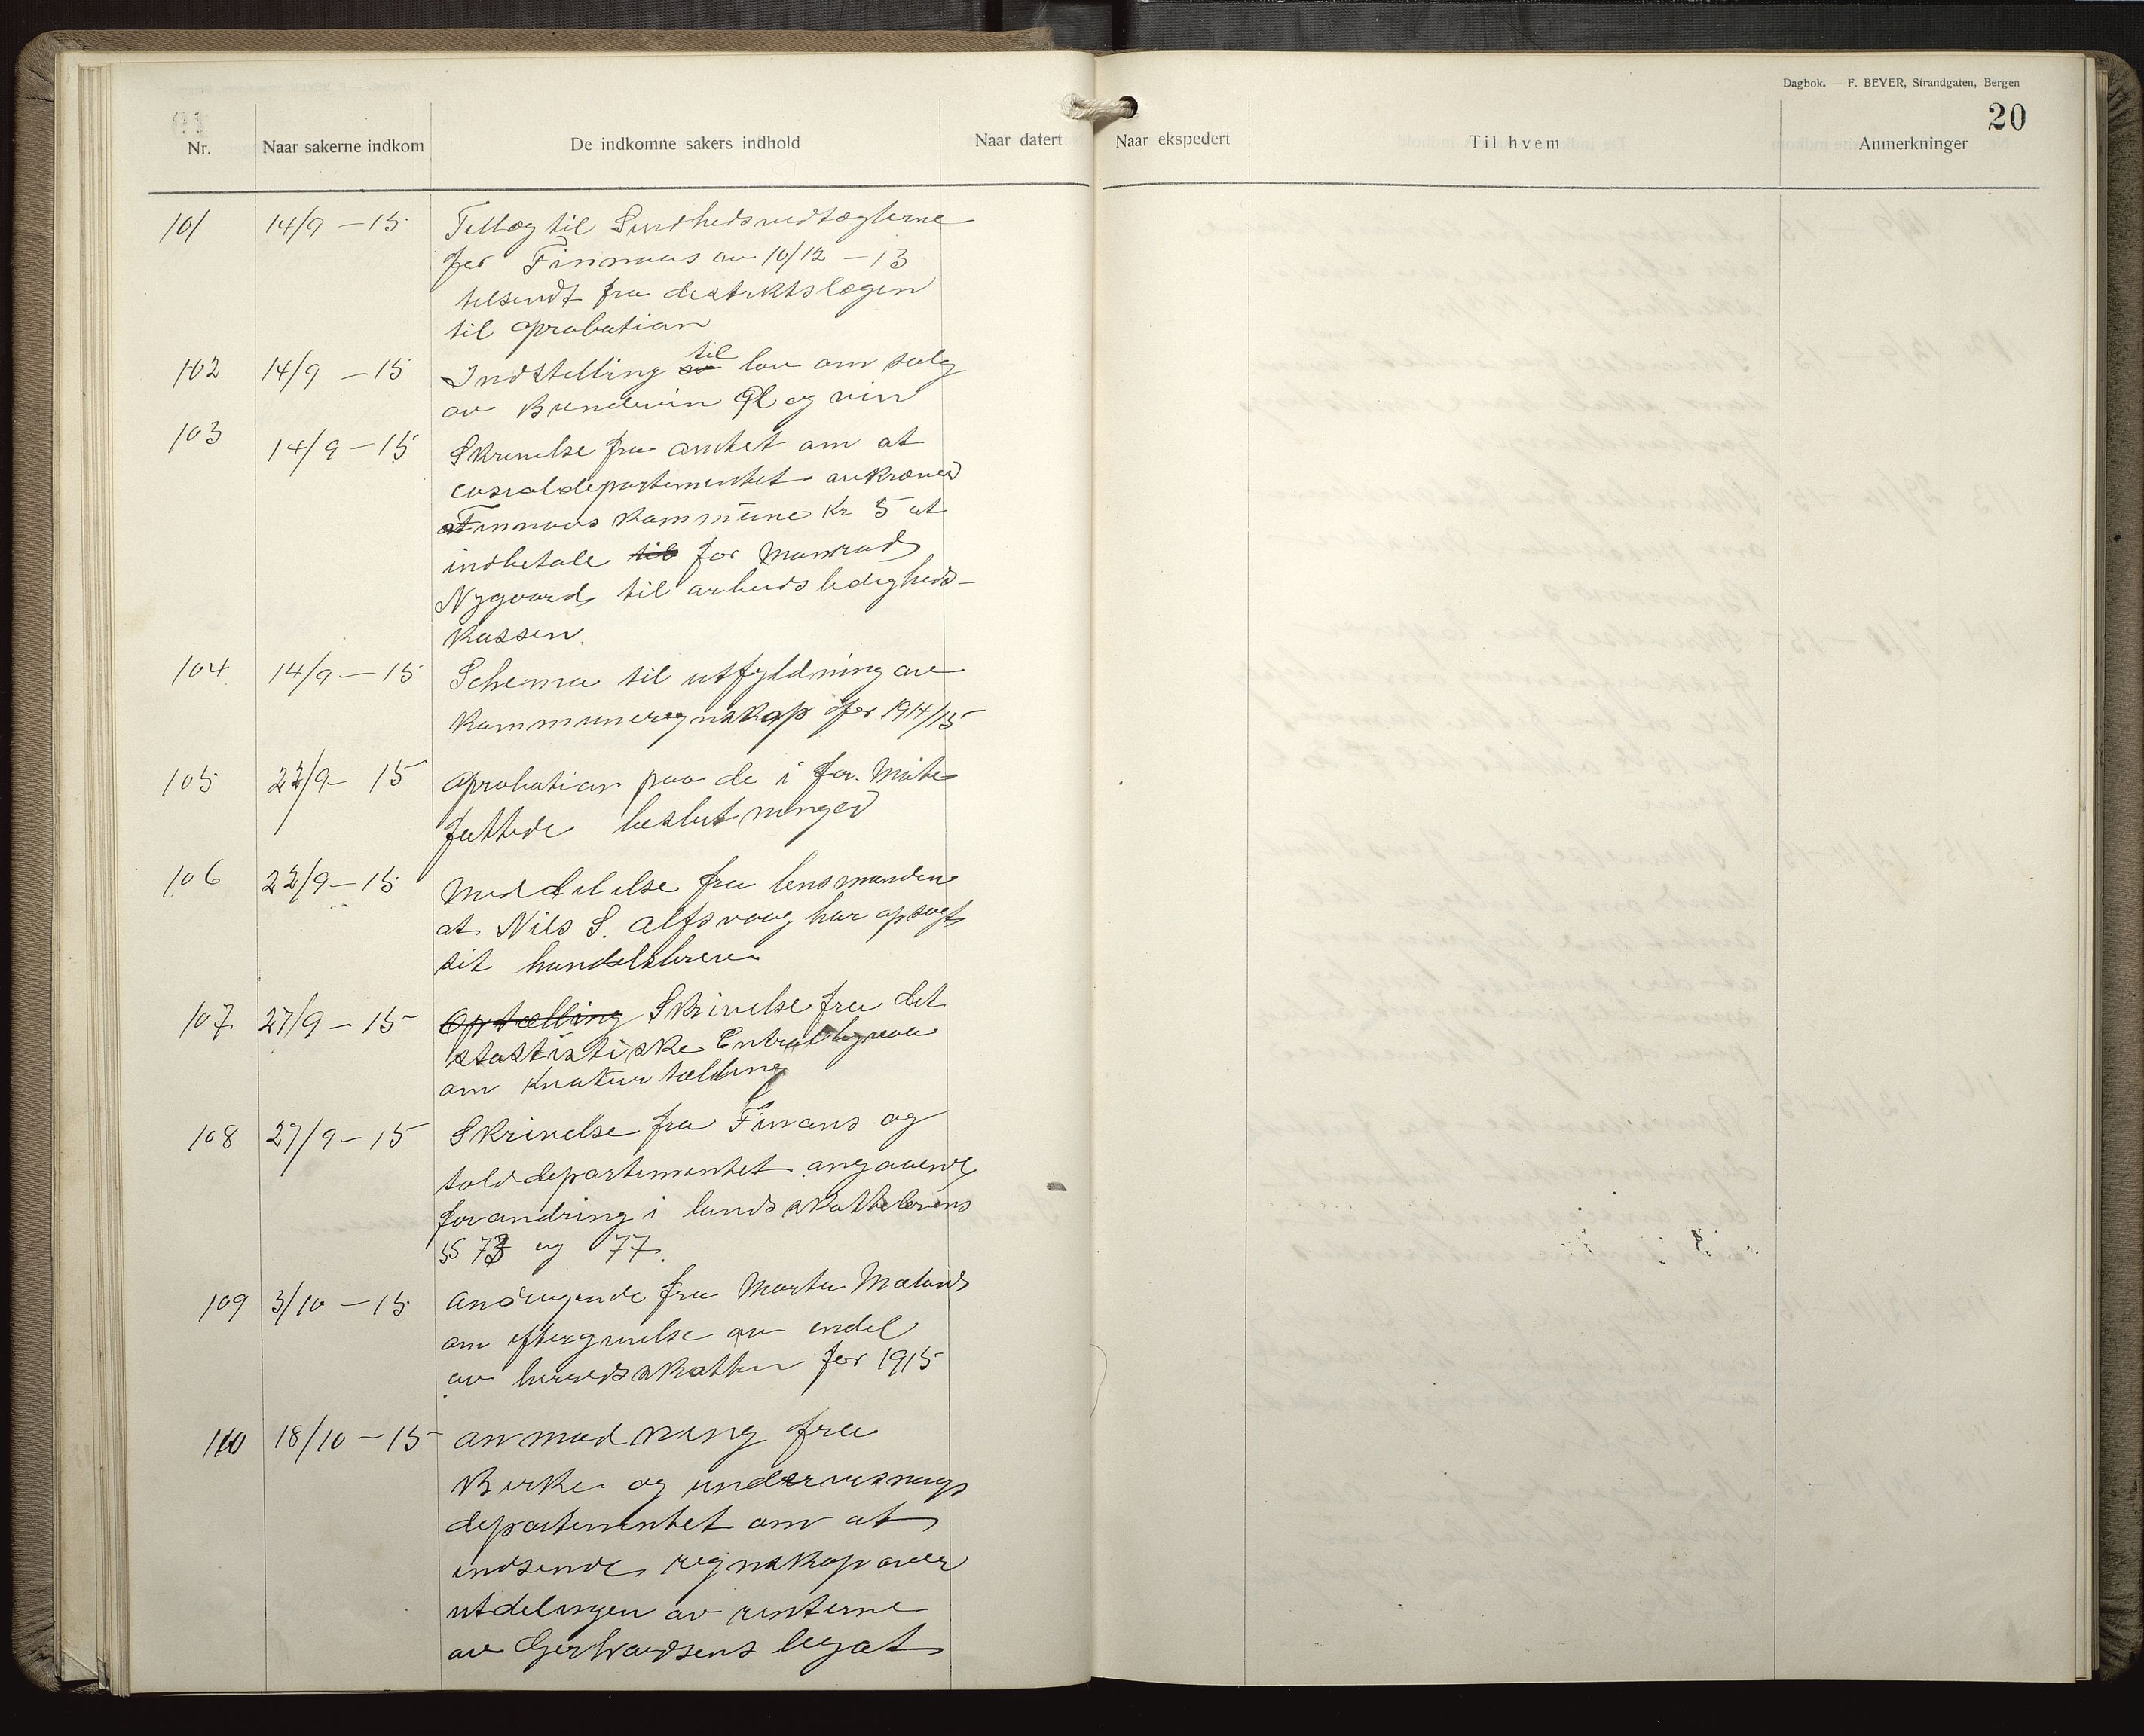 Dagbok. — F. BEYER, Strandgaten, Bergen
20
Nr. Naar sakerne indkom De indkomne sakers indhold Naar datert Naar ekspedert Til hvem Anmerkninger
101 14/9 – 15 Tillæg til Sundhedsvedtægterne
for Finnaas av 10/12 – 13
tilsendt fra destiktslægen
til aprobation
102 14/9 – 15 Indstilling til lov om salg
av Brendevin Øl og vin
103 14/9 – 15 Skrivelse fra amtet om at
cosialdepartementet avkræver
Finnaas kommune kr 5 at
indbetale til for
Nygaard til arbeidsledigheds-
kassen
104 14/9 – 15 Schema til utfyldning av
kommuneregnskap for 1914/15
105 22/9 – 15 aprobation paa de i for. møte
fattede beslutninger
106 22/9 – 15 meddelelse fra lensmanden
at Nils S. Alfsvaag har opsagt
sit handelsbrev
107 27/9 – 15 Optælling Skrivelse fra det
statistiske Entralbyraa
om kreaturtælling
108 27/9 – 15 Skrivelse fra Finans og
tolddepartementet angaaende
forandring i landsskattelovens
§§ 73 og 77.
109 3/10 – 15 andragende fra Marta Mæland
om eftergivelse av endel
av herredsskatten for 1915
110 18/10 – 15 anmodning fra
Kirke og undervisnings
departementet om at
indsende regnskap over
utdelingen av renterne
av Gerhardsens legat